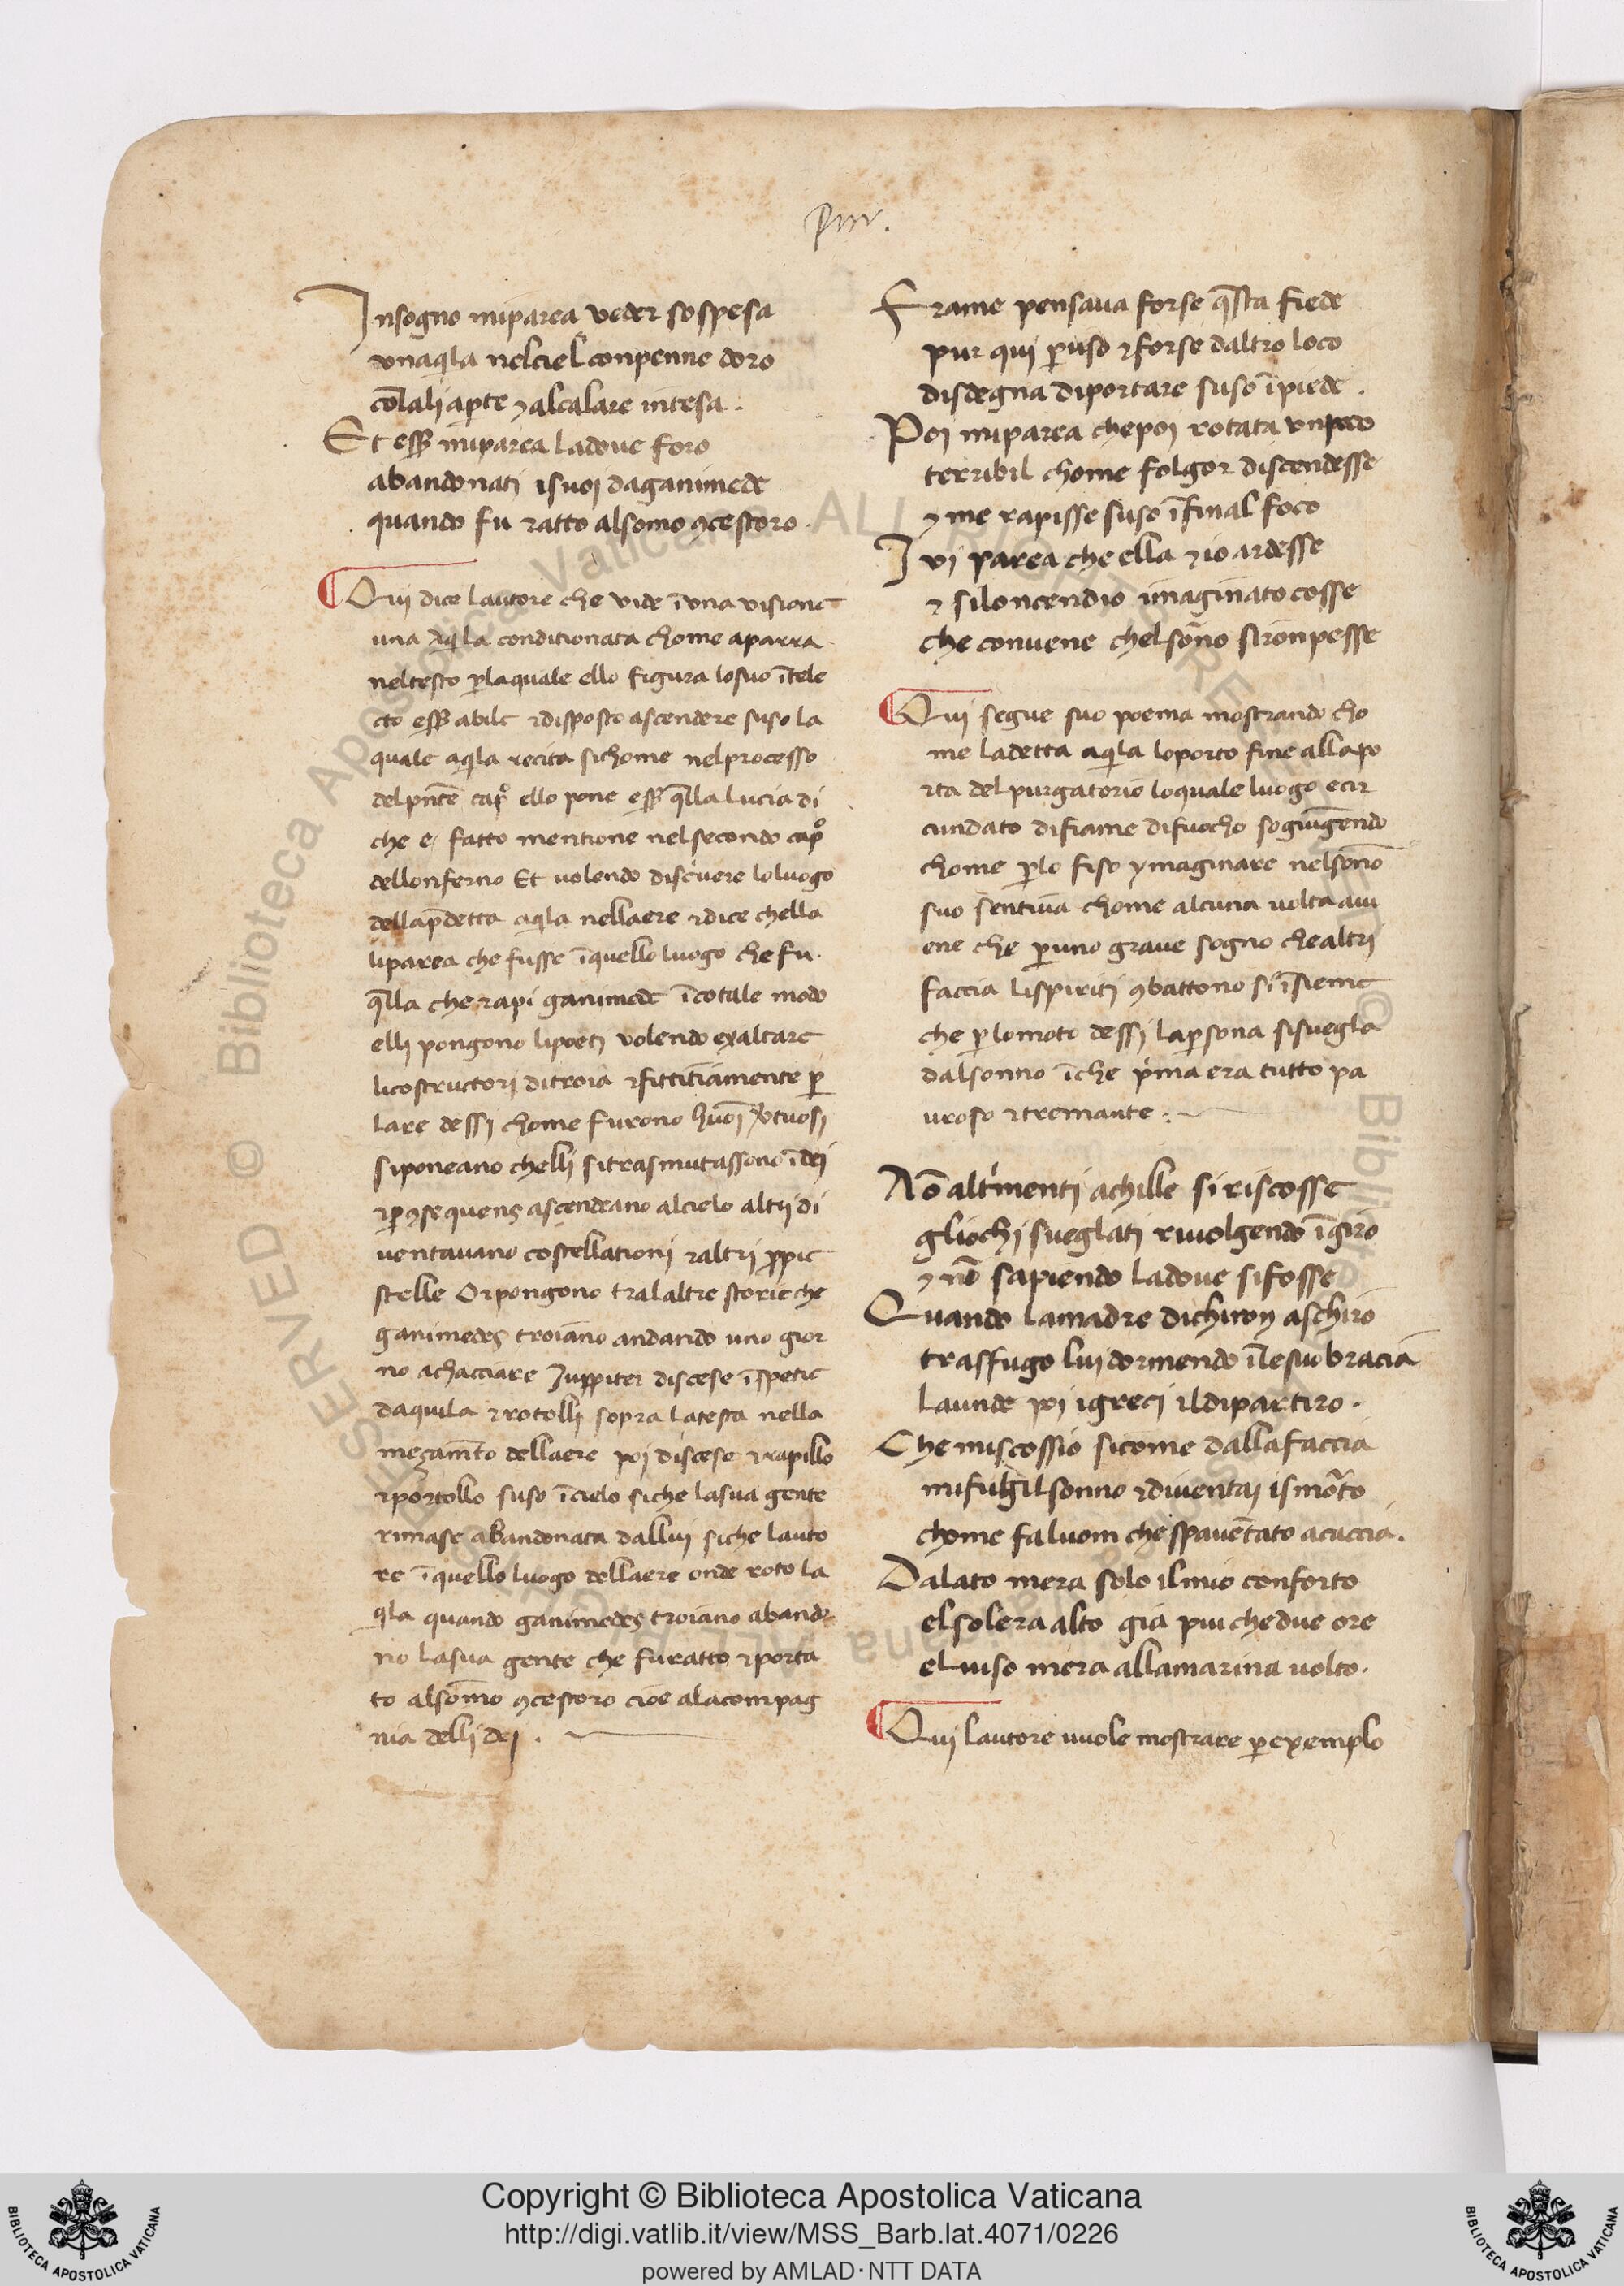 Pur.
Insogno miparea veder sospesa
vnaaq̄la nelciel conpenne doro
cō lali ap̄te ⁊ alcalare intesa.
Et ess̄ miparea ladoue foro
abandonati isuoi daganimede
quando fu ratto alsomo ꝯcestoro.
Qui dice lautore che vide ī una visione
una aq̄la conditionata chome aparra
neltesto ꝑlaquale ello figura losuo ītele
cto ess̄ abile ⁊ disposto ascendere suso la
quale aq̄la recita sichome nelprocesso
delpn̄te cap̊ ello pone ess̄ q̄lla Lucia di
che e fatto mentione nelsecondo cap̊
dellonferno Et volendo discriuere loluogo
dellap̄detta aq̄la nellaere ⁊ dice chella
liparea che fusse ī quello luogo che fu.
q̄lla che rapi ganimede ī cotale modo
elli pongono lipoeti volendo exaltare
licostructori ditroia ⁊ fittitiamente ꝑ
lare dessi chome furono huoī v̓tuosi
siponeano chelli sitrasmutassono ī dei
⁊ ꝑ ꝯsequens ascendeano alcielo altri di
uentauano costellationi ⁊ altri ꝓpie
stelle Or pongono tralaltre storie che
ganimedes troiano andando uno gior
no achacciare Iuppiter discese ī spetie
daquila ⁊ rotolli sopra latesta nella
mezam̄to dellaere poi discese ⁊ rapillo
⁊ portollo suso ī cielo siche lasua gente
rimase abandonata dallui siche lauto
re ī quello luogo dellaere onde roto la
q̄la quando ganimedes troiano abando
no lasua gente che fu ratto ⁊ porta
to alsom̄o ꝯcestoro cioe alacompag
nia delli dei.
Frame pensaua forse q̄sta fiede
pur qui ꝑ uso ⁊ forse daltro loco
disdegna diportare suso ī piede.
Poi miparea chepoi rotata vnpoco
terribil chome folgor discendesse
⁊ me rapisse suso īfinal foco
Iui parea che ella ⁊ io ardesse
⁊ si loncendio imaginato cosse
che convene chelson̄o sironpesse
Qui segue suo poema mostrando cho
me ladetta aq̄la loporto fine allapo
rta del purgatorio loquale luogo ecir
cundato difiame difuocho sogiūgendo
chome ꝑlo fiso ymaginare nelson̄o
suo sentiuā chome alcuna volta aui
ene che ꝑ uno graue sogno che altri
faccia lispiriti ꝯbattono si īsieme
che ꝑlomoto dessi laꝑsona sisuegla
dalsonno īche pͥma era tutto pa
uroso ⁊ tremante.
Nō altͥmenti achille si riscosse
gliochi sueglati riuolgendo ī giro
⁊ nō sapiendo ladoue sifosse
Quando lamadre dichiron aschiro
trasfugo lui dormendo ī lesuo bracia
launde poi igreci ildipartiro.
Che miscossio sicome dallafaccia
mifuhgilsonno ⁊ diuentai ismōrto
chome faluom che spauētato acaccia.
Dalato mera solo ilmio conforto
elsolera alto gia piu chedue ore
eluiso mera allamarina volto.
Qui lautore vuole mostrare ꝑ exemplo
Copyright © Biblioteca Apostolica Vaticana
http://digi.vatlib.it/view/MSS_Barb.lat.4071/0226
powered by AMLAD·NTT DATA